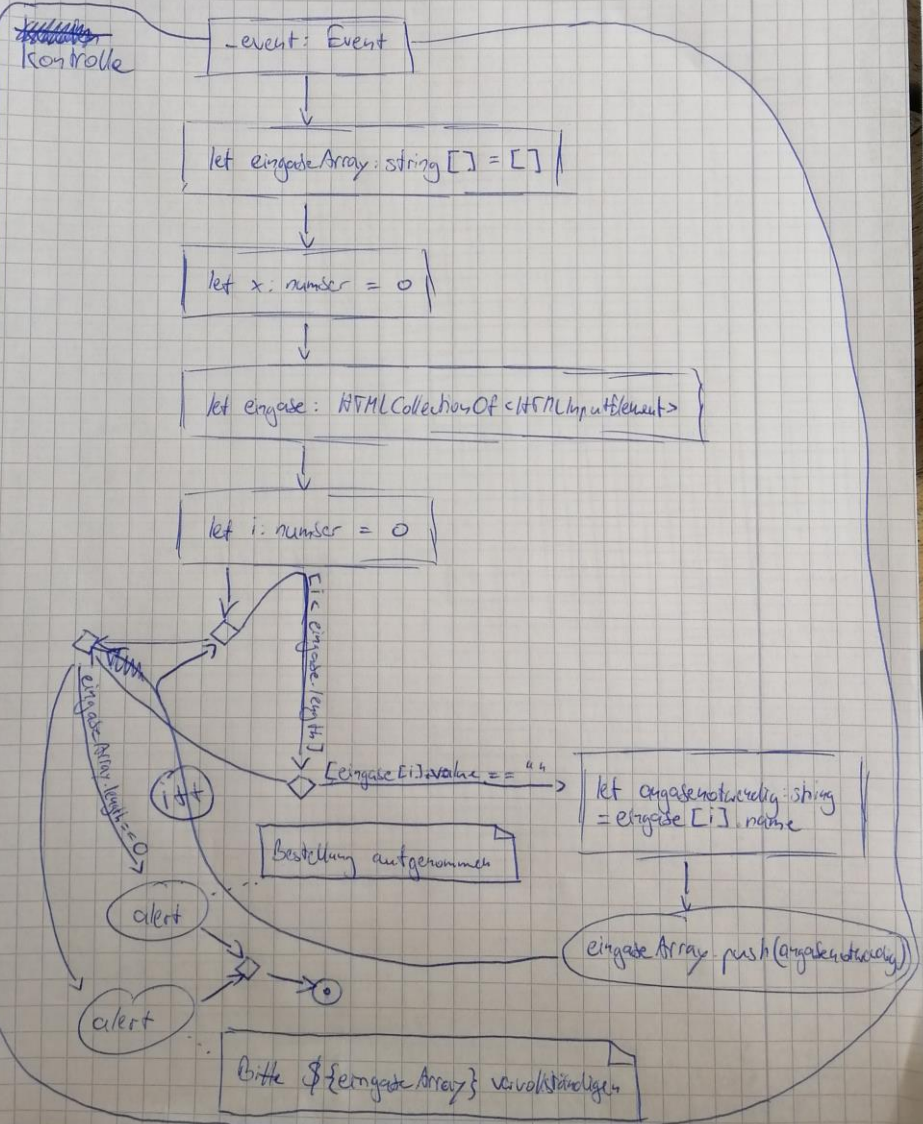 Kontrolle
_event: Event
let eingabeArray: string [] = []
let x: number = 0
let eingabe: HTMLCollectionOf <HTMLInputElement>
let i: number = 0
[i < eingabe.length]
eingabeArray.length == 0
i++
[eingabe[i].value == ""
let angabenotwendig: string
= eingabe [i].name
Bestellung aufgenommen
alert
eingabeArray.push(angabenotwendig)
alert
Bitte ${eingabeArray} vervollständigen